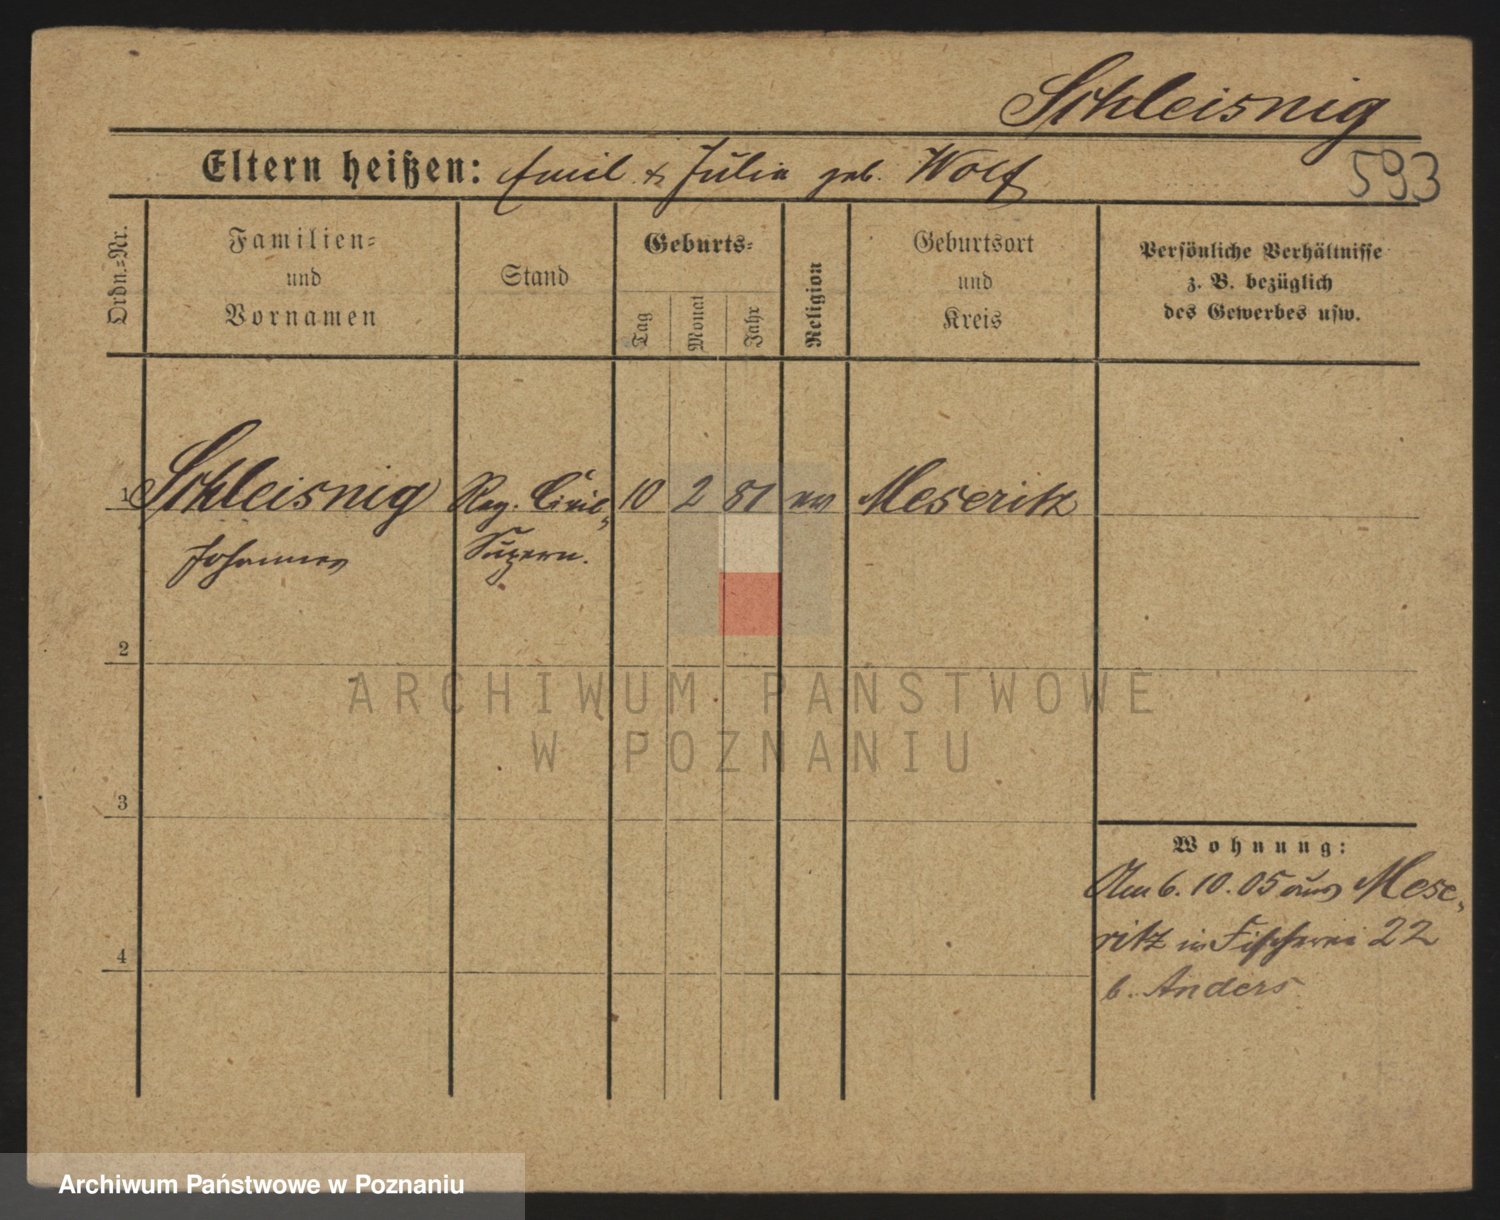 Schleisnig
593
Eltern heißen: Emil & Julia geb. Wolf
Ordn.-Nr.
Familien-
und
Vornamen
Stand
Geburts-
Tag
Monat
Jahr
Religion
Geburtsort
und
Kreis
Persönliche Verhältnisse
z. B. bezüglich
des Gewerbes usw.
1 Schleisnig Reg. Civil- 10 2 81 ev Meseritz
Johannes Supern.
2
ARCHIWUM PAŃSTWOWE
W POZNANIU
3
Wohnung:
Am 6. 10. 05 aus Mese-
ritz in Fischerei 22
b. Anders
4
Archiwum Państwowe w Poznaniu